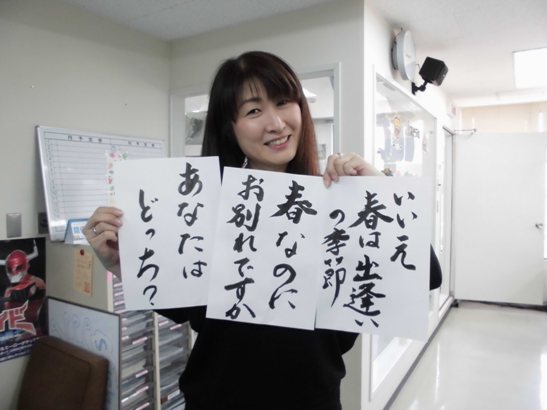 いいえ
春は出逢い
の季節
春なのに
お別れですか
あなたは
どっち？